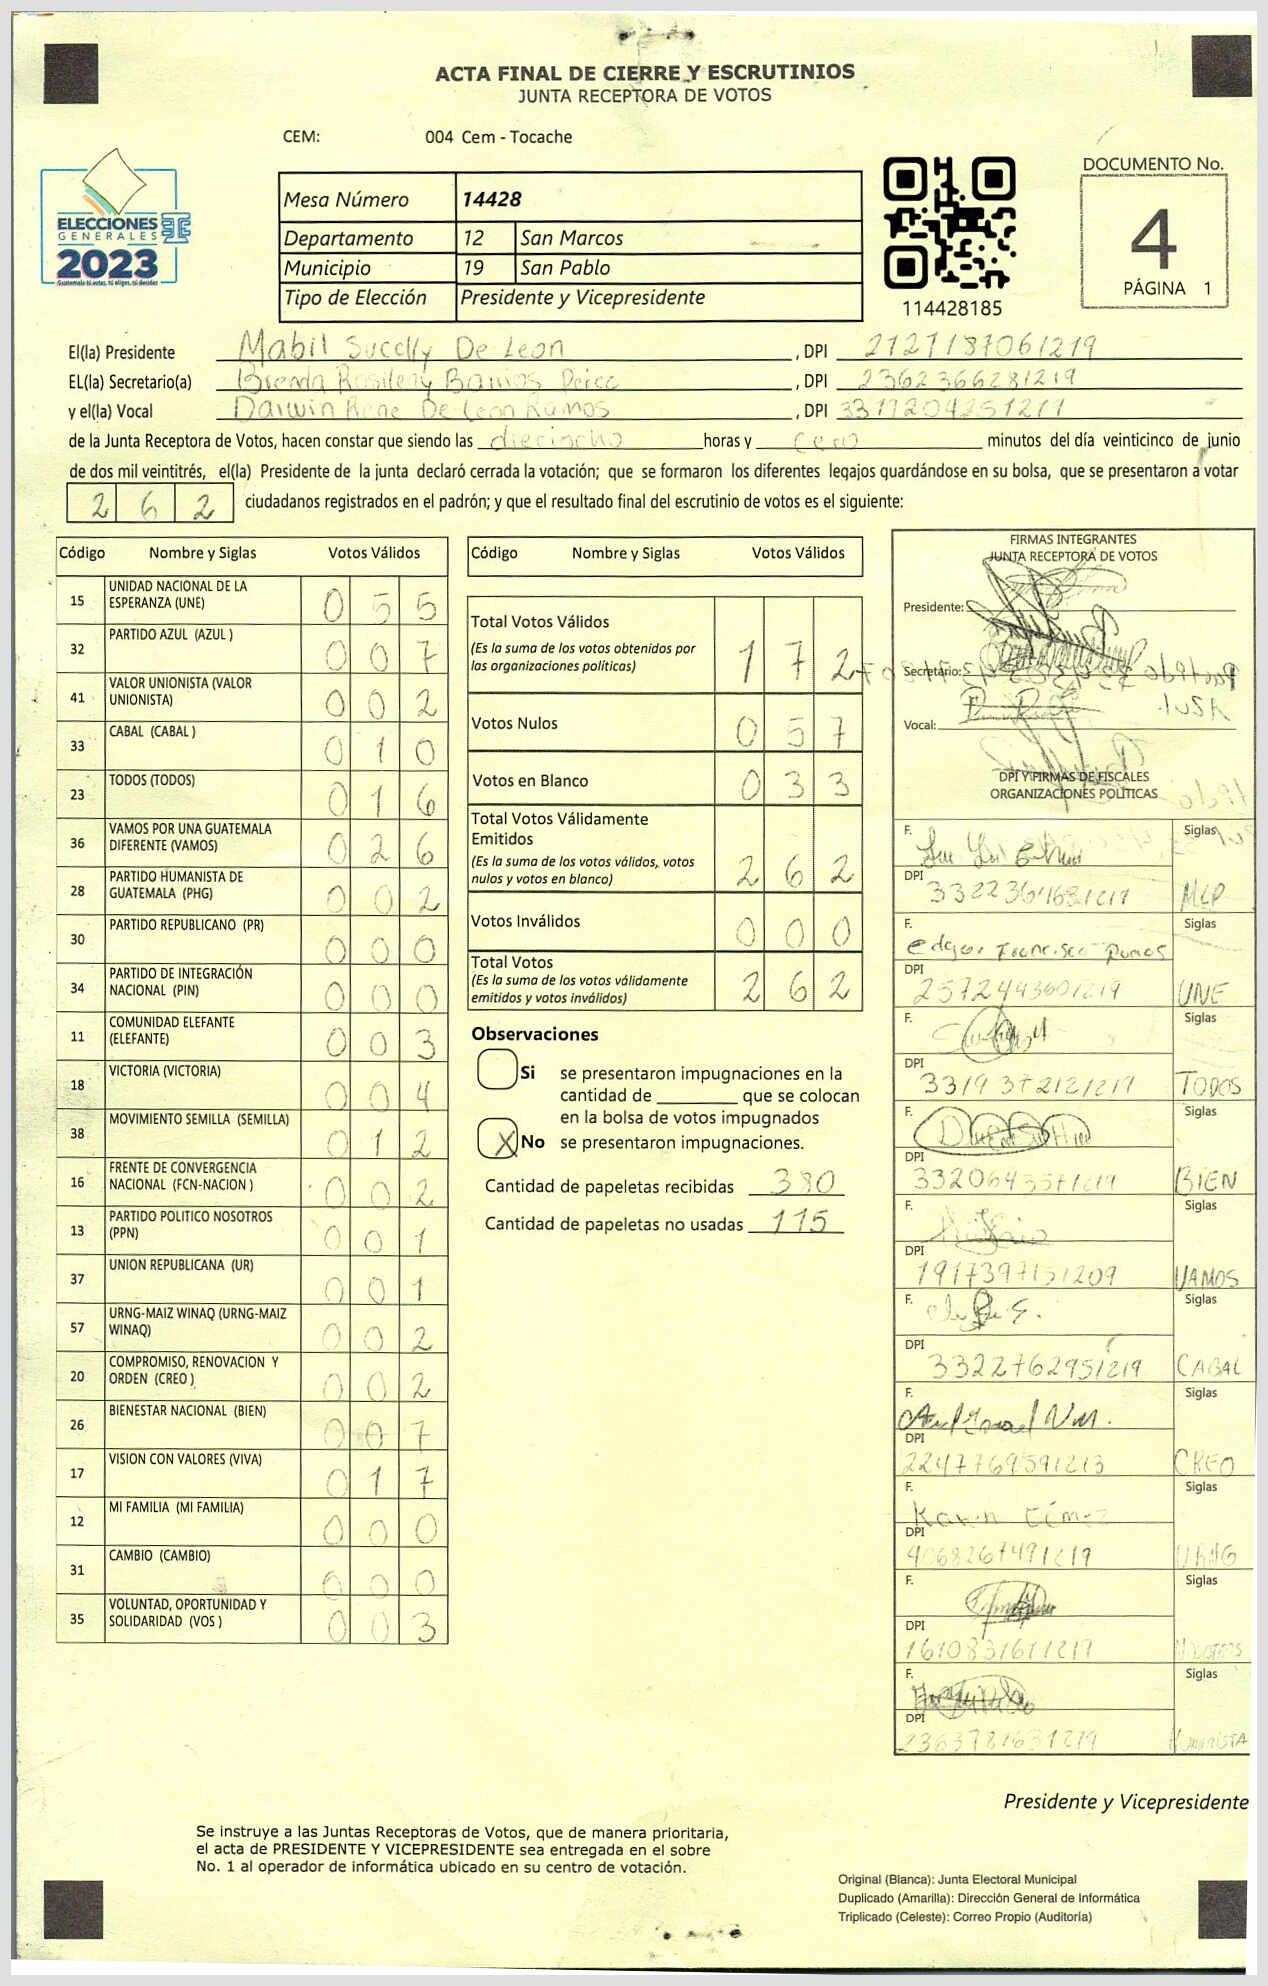 ACTA FINAL DE CIERRE Y ESCRUTINIOS
JUNTA RECEPTORA DE VOTOS
CEM: 004 Cem - Tocache
ELECCIONES
GENERALES
2023
Guatemala tú votas, tú eliges, tú decides
Mesa Número 14428
Departamento 12 San Marcos
Municipio 19 San Pablo
Tipo de Elección Presidente y Vicepresidente
114428185
DOCUMENTO No.
4
PÁGINA 1
El(la) Presidente Mabil Sucelly De Leon , DPI 2127187061219
EL(la) Secretario(a) Brenda Rosileny Barrios Perez , DPI 2362366281219
y el(la) Vocal Darwin Rene De Leon Ramos , DPI
de la Junta Receptora de Votos, hacen constar que siendo las dieciocho horas y cero minutos del día veinticinco de junio
de dos mil veintitrés, el(la) Presidente de la junta declaró cerrada la votación; que se formaron los diferentes legajos quardándose en su bolsa, que se presentaron a votar
262 ciudadanos registrados en el padrón; y que el resultado final del escrutinio de votos es el siguiente:
Código Nombre y Siglas Votos Válidos
15 UNIDAD NACIONAL DE LA ESPERANZA (UNE) 055
32 PARTIDO AZUL (AZUL ) 007
41 VALOR UNIONISTA (VALOR UNIONISTA) 002
33 CABAL (CABAL ) 010
23 TODOS (TODOS) 016
36 VAMOS POR UNA GUATEMALA DIFERENTE (VAMOS) 026
28 PARTIDO HUMANISTA DE GUATEMALA (PHG) 002
30 PARTIDO REPUBLICANO (PR) 000
34 PARTIDO DE INTEGRACIÓN NACIONAL (PIN) 000
11 COMUNIDAD ELEFANTE (ELEFANTE) 003
18 VICTORIA (VICTORIA) 004
38 MOVIMIENTO SEMILLA (SEMILLA) 012
16 FRENTE DE CONVERGENCIA NACIONAL (FCN-NACION ) 002
13 PARTIDO POLITICO NOSOTROS (PPN) 001
37 UNION REPUBLICANA (UR) 001
57 URNG-MAIZ WINAQ (URNG-MAIZ WINAQ) 002
20 COMPROMISO, RENOVACION Y ORDEN (CREO ) 002
26 BIENESTAR NACIONAL (BIEN) 007
17 VISION CON VALORES (VIVA) 017
12 MI FAMILIA (MI FAMILIA) 000
31 CAMBIO (CAMBIO) 000
35 VOLUNTAD, OPORTUNIDAD Y SOLIDARIDAD (VOS ) 003
Código Nombre y Siglas Votos Válidos
Total Votos Válidos 172
(Es la suma de los votos obtenidos por
las organizaciones políticas)
Votos Nulos 057
Votos en Blanco 033
Total Votos Válidamente
Emitidos 262
(Es la suma de los votos válidos, votos
nulos y votos en blanco)
Votos Inválidos 000
Total Votos 262
(Es la suma de los votos válidamente
emitidos y votos inválidos)
Observaciones
Si se presentaron impugnaciones en la
cantidad de ________ que se colocan
en la bolsa de votos impugnados
X No se presentaron impugnaciones.
Cantidad de papeletas recibidas 380
Cantidad de papeletas no usadas 115
FIRMAS INTEGRANTES
JUNTA RECEPTORA DE VOTOS
Presidente:
Secretario:
Vocal:
DPI Y FIRMAS DE FISCALES
ORGANIZACIONES POLÍTICAS
F. Siglas
DPI MLP
F. Edgar Francisco Ramos Siglas
DPI 2572443601219 UNE
F. Siglas
DPI 3319372121219 TODOS
F. Siglas
DPI BIEN
F. Siglas
DPI 1917397151209 VAMOS
F. Siglas
DPI 3322762951219 CABAL
F. Siglas
DPI 2247769591213 CREO
F. Karin Gómez Siglas
DPI 4068267491219 URNG
F. Siglas
DPI 1610831611219 NOSOTROS
F. Siglas
DPI 2363781631219 HUMANISTA
Presidente y Vicepresidente
Se instruye a las Juntas Receptoras de Votos, que de manera prioritaria,
el acta de PRESIDENTE Y VICEPRESIDENTE sea entregada en el sobre
No. 1 al operador de informática ubicado en su centro de votación.
Original (Blanca): Junta Electoral Municipal
Duplicado (Amarilla): Dirección General de Informática
Triplicado (Celeste): Correo Propio (Auditoría)